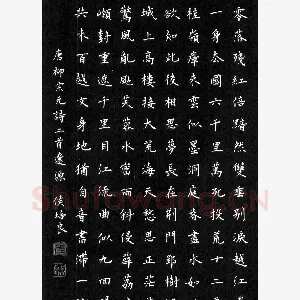 零落殘紅倍黯然雙垂別淚越江
一身去國六千里萬死投荒十二
桂嶺瘴來雲似墨洞庭春盡水如
欲知此後相思夢長在荊門郢樹
城上高樓接大荒海天愁思正茫
驚風亂颭芙蓉水密雨斜侵薜荔
嶺樹重遮千里目江流曲似九回
共來百越文身地猶自音書滯一
唐柳宗元詩二首遼源侯培良